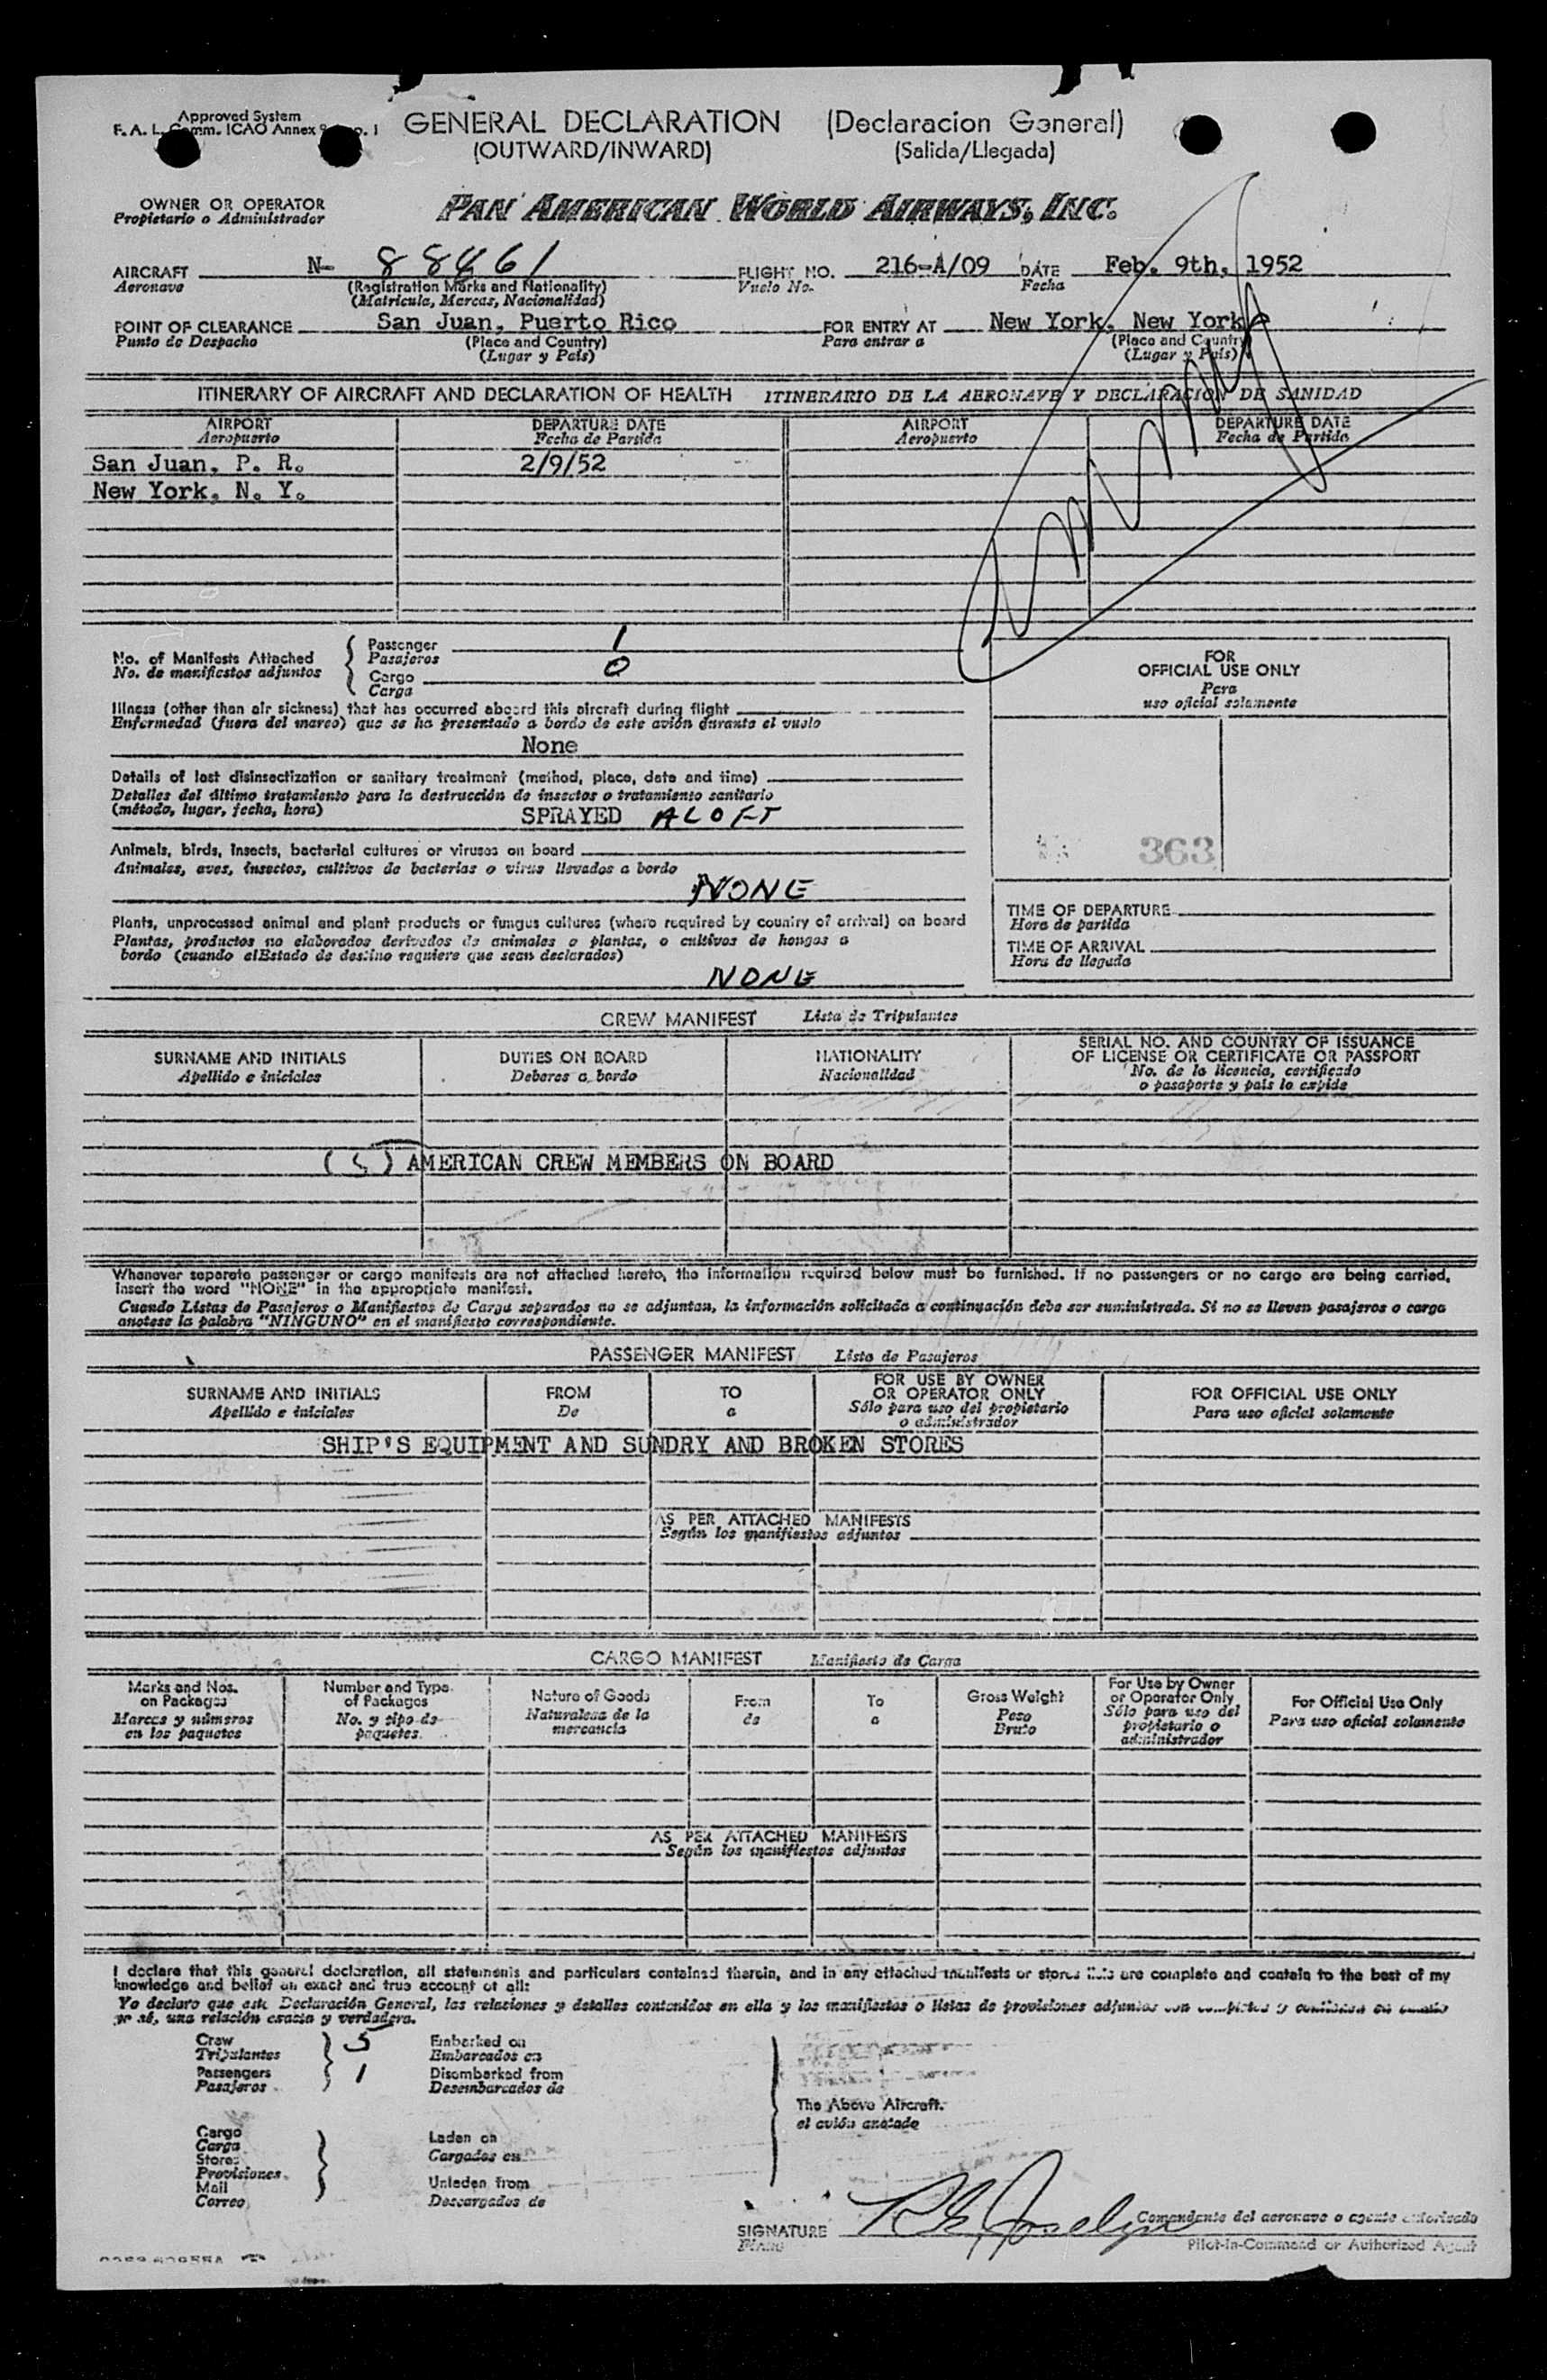 Approved System
F. A. L. Comm. ICAO Annex
GENERAL DECLARATION (Declaracion General)
(OUTWARD/INWARD) (Salida/Llegada)
OWNER OR OPERATOR
Propietario o Administrador
PAN AMERICAN WORLD AIRWAYS, INC.
AIRCRAFT N- 88461 FLIGHT NO. 216-A/09 DATE Feb. 9th, 1952
Aeronave (Registration Marks and Nationality) Vuelo No. Fecha
(Matricula, Marcas, Nacionalidad)
POINT OF CLEARANCE San Juan, Puerto Rico FOR ENTRY AT New York, New York
Punto de Despacho (Place and Country) Para entrar a (Place and Country)
(Lugar y País) (Lugar y País)
ITINERARY OF AIRCRAFT AND DECLARATION OF HEALTH ITINERARIO DE LA AERONAVE Y DECLARACION DE SANIDAD
AIRPORT DEPARTURE DATE AIRPORT DEPARTURE DATE
Aeropuerto Fecha de Partida Aeropuerto Fecha de Partida
San Juan, P. R. 2/9/52
New York, N. Y.
No. of Manifests Attached
No. de manifiestos adjuntos
Passenger 1
Pasajeros
Cargo 0
Carga
FOR
OFFICIAL USE ONLY
Para
uso oficial solamente
Illness (other than air sickness) that has occurred aboard this aircraft during flight
Enfermedad (fuera del mareo) que se ha presentado a bordo de este avión durante el vuelo
None
Details of last disinsectization or sanitary treatment (method, place, date and time)
Detalles del último tratamiento para la destrucción de insectos o tratamiento sanitario
(método, lugar, fecha, hora)
SPRAYED ALOFT
363
Animals, birds, insects, bacterial cultures or viruses on board
Animales, aves, insectos, cultivos de bacterias o virus llevados a bordo
NONE
Plants, unprocessed animal and plant products or fungus cultures (where required by country of arrival) on board
Plantas, productos no elaborados derivados de animales o plantas, o cultivos de hongos a
bordo (cuando elEstado de destino requiere que sean declarados)
NONE
TIME OF DEPARTURE
Hora de partida
TIME OF ARRIVAL
Hora de llegada
CREW MANIFEST Lista de Tripulantes
SURNAME AND INITIALS DUTIES ON BOARD NATIONALITY SERIAL NO. AND COUNTRY OF ISSUANCE
OF LICENSE OR CERTIFICATE OR PASSPORT
Apellido e iniciales Deberes a bordo Nacionalidad No. de la licencia, certificado
o pasaporte y país lo expide
(5) AMERICAN CREW MEMBERS ON BOARD
Whenever separate passenger or cargo manifests are not attached hereto, the information required below must be furnished. If no passengers or no cargo are being carried,
insert the word "NONE" in the appropriate manifest.
Cuando Listas de Pasajeros o Manifiestos de Carga separados no se adjuntan, la información solicitada a continuación debe ser suministrada. Si no se llevan pasajeros o carga
anotese la palabra "NINGUNO" en el manifiesto correspondiente.
PASSENGER MANIFEST Lista de Pasajeros
SURNAME AND INITIALS FROM TO FOR USE BY OWNER
OR OPERATOR ONLY FOR OFFICIAL USE ONLY
Apellido e iniciales De a Sólo para uso del propietario
o administrador Para uso oficial solamente
SHIP'S EQUIPMENT AND SUNDRY AND BROKEN STORES
AS PER ATTACHED MANIFESTS
Según los manifiestos adjuntos
CARGO MANIFEST Manifiesto de Carga
Marks and Nos.
on Packages
Marcas y números
en los paquetes
Number and Type
of Packages
No. y tipo de
paquetes.
Nature of Goods
Naturaleza de la
mercancía
From
de
To
a
Gross Weight
Peso
Bruto
For Use by Owner
or Operator Only
Sólo para uso del
propietario o
administrador
For Official Use Only
Para uso oficial solamente
AS PER ATTACHED MANIFESTS
Según los manifiestos adjuntos
I declare that this general declaration, all statements and particulars contained therein, and in any attached manifests or stores lists are complete and contain to the best of my
knowledge and belief an exact and true account of all:
Yo declaro que esta Declaración General, las relaciones y detalles contenidos en ella y los manifiestos o listas de provisiones adjuntas son completas y
sé, una relación exacta y verdadera.
Crew 5 Embarked on
Tripulantes Embarcados en
Passengers 1 Disembarked from
Pasajeros Desembarcados de
The Above Aircraft.
el avión anotado
Cargo
Carga
Stores
Provisiones
Mail
Correo
Laden on
Cargados en
Unladen from
Descargados de
SIGNATURE R E Joselyn Comandante del aeronave o agente autorizado
Firma Pilot-in-Command or Authorized Agent